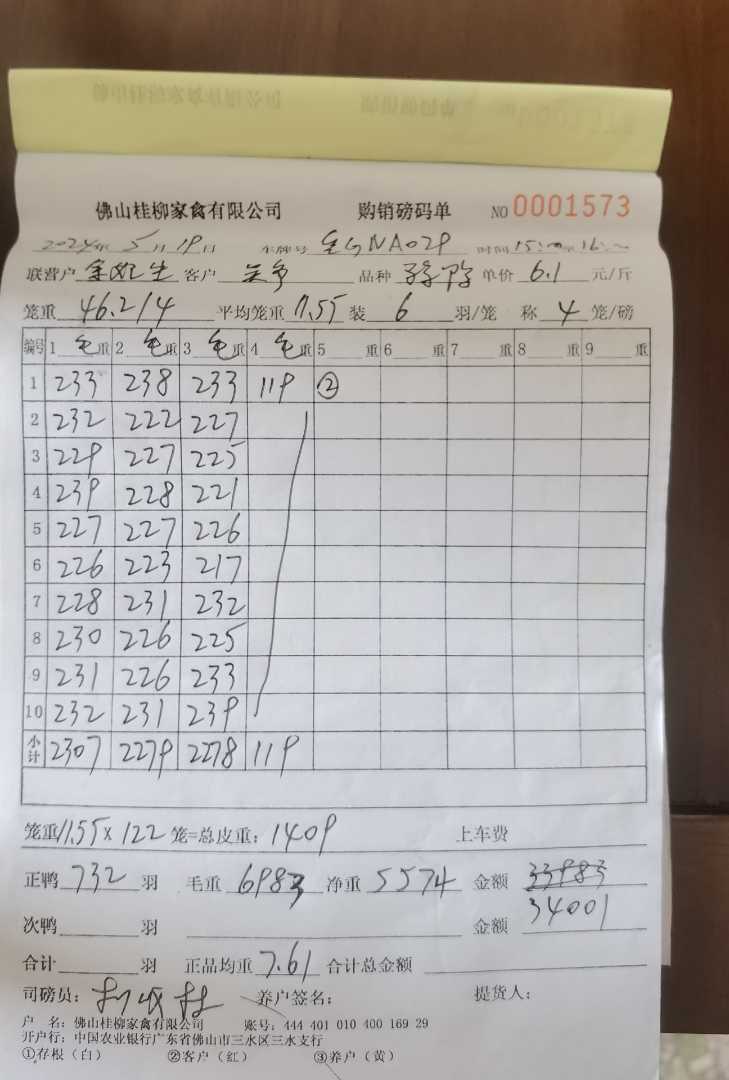 佛山桂柳家禽有限公司 购销磅码单 NO 0001573
2024年5月19日 车牌号 NA029 时间 15
联营户 客户 品种 单价 6.1 元/斤
笼重 46.2/4 平均笼重 11.55 装 6 羽/笼 称 4 笼/磅
编号 1 毛重 2 毛重 3 毛重 4 毛重 5 重 6 重 7 重 8 重 9 重
1 233 238 233 119 ②
2 232 222 227
3 229 227 225
4 239 228 221
5 227 227 226
6 226 223 217
7 228 231 232
8 230 226 225
9 231 226 233
10 232 231 239
小计 2307 2279 2278 119
笼重 11.55 x 122 笼=总皮重: 1409 上车费
正鸭 732 羽 毛重 6983 净重 5574 金额 33983
34001
次鸭 羽 金额
合计 羽 正品均重 7.61 合计总金额
司磅员: 养户签名: 提货人:
户 名: 佛山桂柳家禽有限公司 账号: 444 401 010 400 169 29
开户行: 中国农业银行广东省佛山市三水区三水支行
①存根(白) ②客户(红) ③养户(黄)